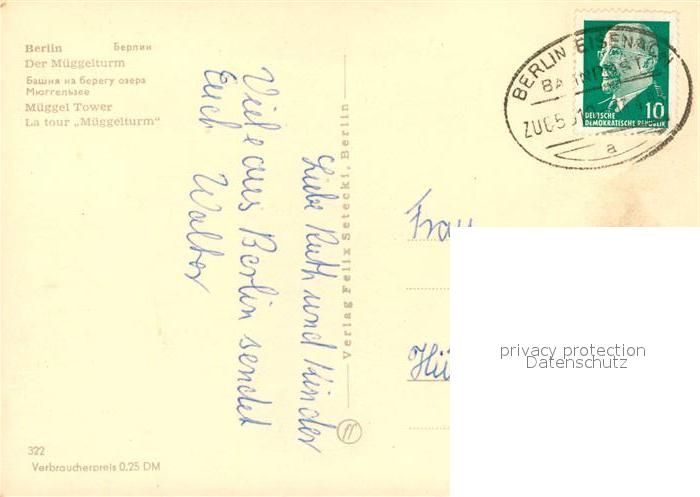 Berlin Берлин
Der Müggelturm
Башня на берегу озера
Мюггельзее
Müggel Tower
La tour „Müggelturm“
BERLIN-EISENACH
BAHNPOST
a
10
DEUTSCHE
DEMOKRATISCHE REPUBLIK
Liebe Ruth und Kinder
Viele aus Berlin sendet
Euch
Walter
Verlag Felix Setecki, Berlin
Frau
privacy protection
Datenschutz
322
Verbraucherpreis 0,25 DM